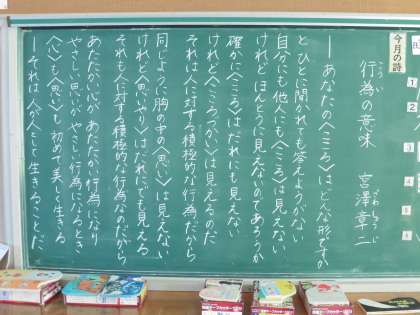 今月の詩
行為の意味
こうい
宮澤章二
みやざわしょうじ
―あなたの〈こころ〉はどんな形ですか
と ひとに聞かれても答えようがない
自分にも他人にも〈こころ〉は見えない
けれど ほんとうに見えないのであろうか
確かに〈こころ〉はだれにも見えない
けれど〈こころづかい〉は見えるのだ
それは人に対する積極的な行為だから
同じように胸の中の〈思い〉は見えない
けれど〈思いやり〉はだれにでも見える
それも人に対する積極的な行為なのだから
あたたかい心が あたたかい行為になり
やさしい思いが やさしい行為になるとき
〈心〉も〈思い〉も 初めて美しく生きる
―それは 人が人として生きることだ
1
2
3
4